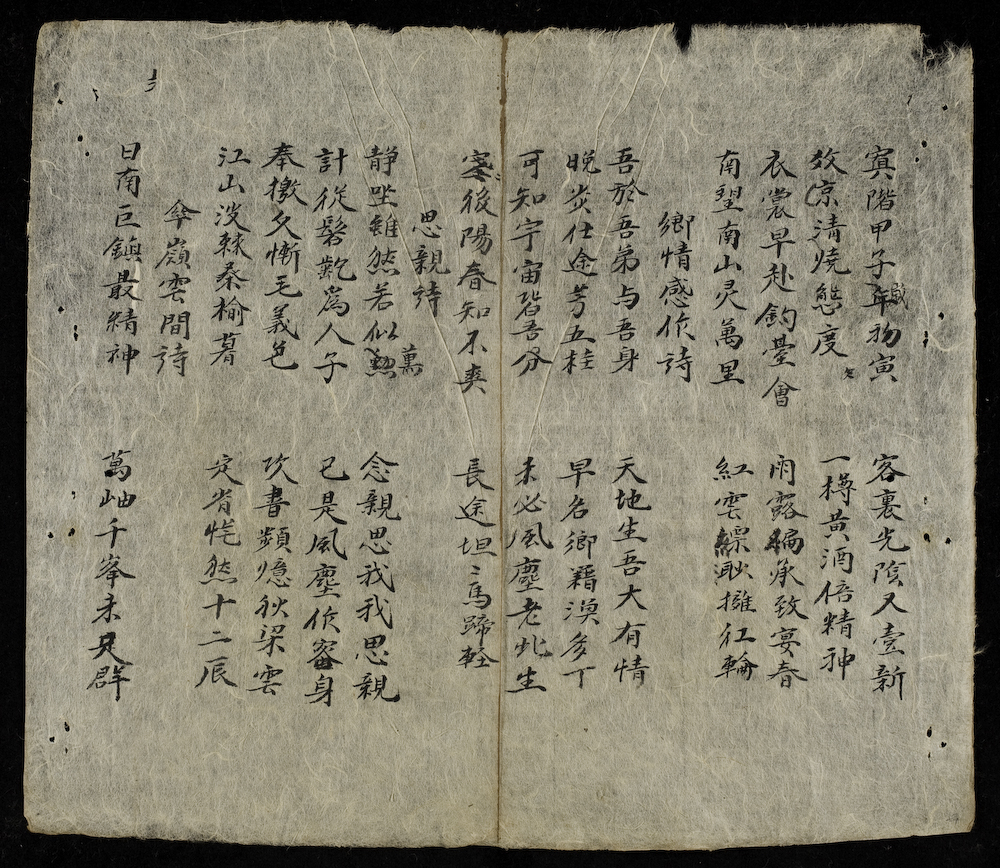 蓂階甲子歲初寅 客裏光陰又壹新
效京清燒態度 一樽黃酒倍精神
衣裳早赴鈞臺會 雨露編承致宴春
南望南山灵萬里 紅雲耿擁征輪
鄉情感作詩
吾於吾弟与吾身 天地生吾大有情
晚炎仕途芳五桂 早名鄉藉漠多丁
可知宇宙皆吾分 未必風塵老此生
寒後陽春知不爽 長途坦〻馬蹄輕
思親詩
静坐雖然若似萬 念親思我我思親
計從髫齔爲人子 已是風塵作客身
奉檄久慚毛義色 坎書頻憶狄梁雲
江山沒棘桑榆暮 定省恍然十二辰
傘嶺雲間詩
日南巨鎮最精神 萬岫千峯未見群